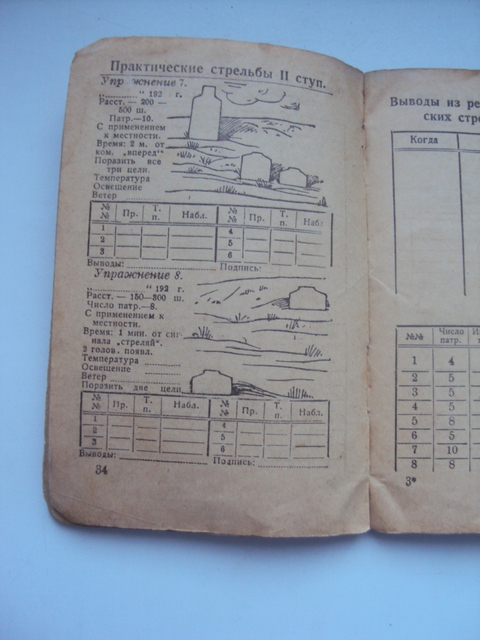 Практические стрельбы II ступ.
Упр жнение 7.
„............“ 192 г.
Расст. — 200 —
500 ш.
Патр.—10.
С применением
к местности.
Время: 2 м. от
ком. „вперед“
Поразить все
три цели.
Температура
Освещение
Ветер
№№ Пр. Т. п. Набл. №№ Пр. Т. п. Набл.
1 4
2 5
3 6
Выводы: Подпись:
Упражнение 8.
„............“ 192 г.
Расст. — 150—300 ш.
Число патр.—8.
С применением к
местности.
Время: 1 мин. от сиг-
нала „стреляй“.
2 голов. появл.
Температура
Освещение
Ветер
Поразить две цели
№№ Пр. Т. п. Набл. №№ Пр. Т. п. Набл.
1 4
2 5
3 6
Выводы: Подпись:
34
Выводы из ре
ских стре
Когда
№№ Число патр.
1 4
2 5
3 5
4 5
5 8
6 5
7 10
8 8
3*